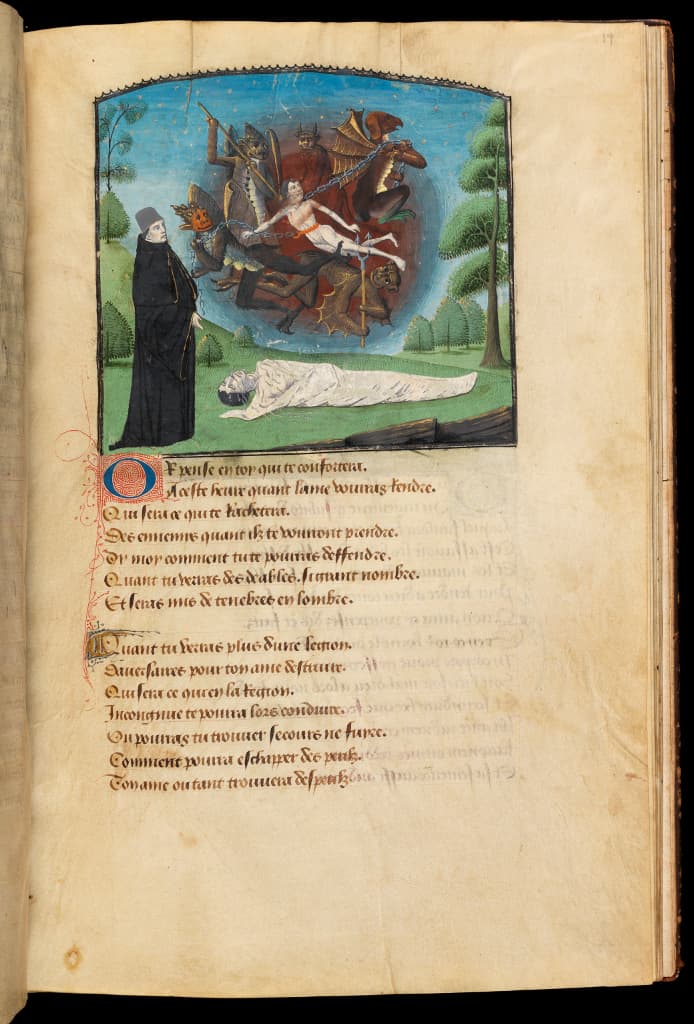 19
Or pense en toy qui te confortera.
A ceste heure quant lame vouras rendre.
Qui sera ce qui te rachetera.
Des ennemis quant ilz te vouront prendre.
Dy moy comment tu te pouras deffendre.
Quant tu verras des deables. si grant nombre.
Et seras mis de tenebres en lombre.
Quant tu verras plus dune legion.
Daversaires pour ton ame destruire.
Qui sera ce qui en la Region.
Incongnue te poura lors conduire.
Ou pouras tu trouver secours ne fuire.
Comment poura eschapper des perilz.
Ton ame ou tant trouvera desperilz.